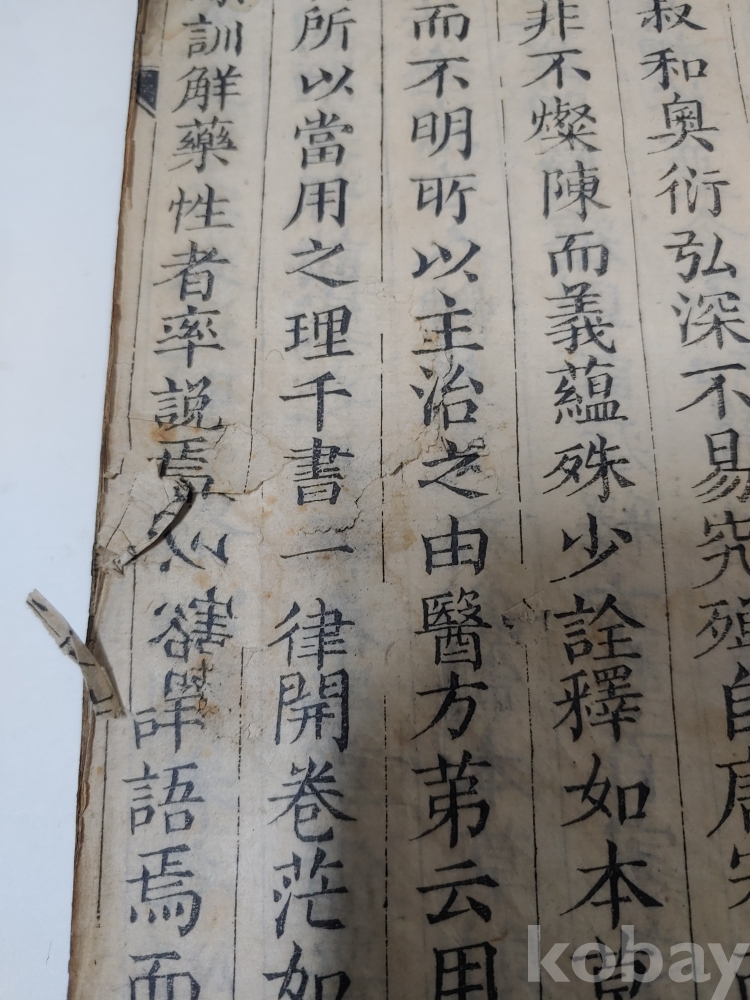 叔和奥衍弘深不易究殫自唐宋
非不燦陳而義蘊殊少詮釋如本草
而不明所以主治之由醫方苐云用
所以當用之理千書一律開卷茫如
訓解藥性者率説焉欲語焉而
kobay